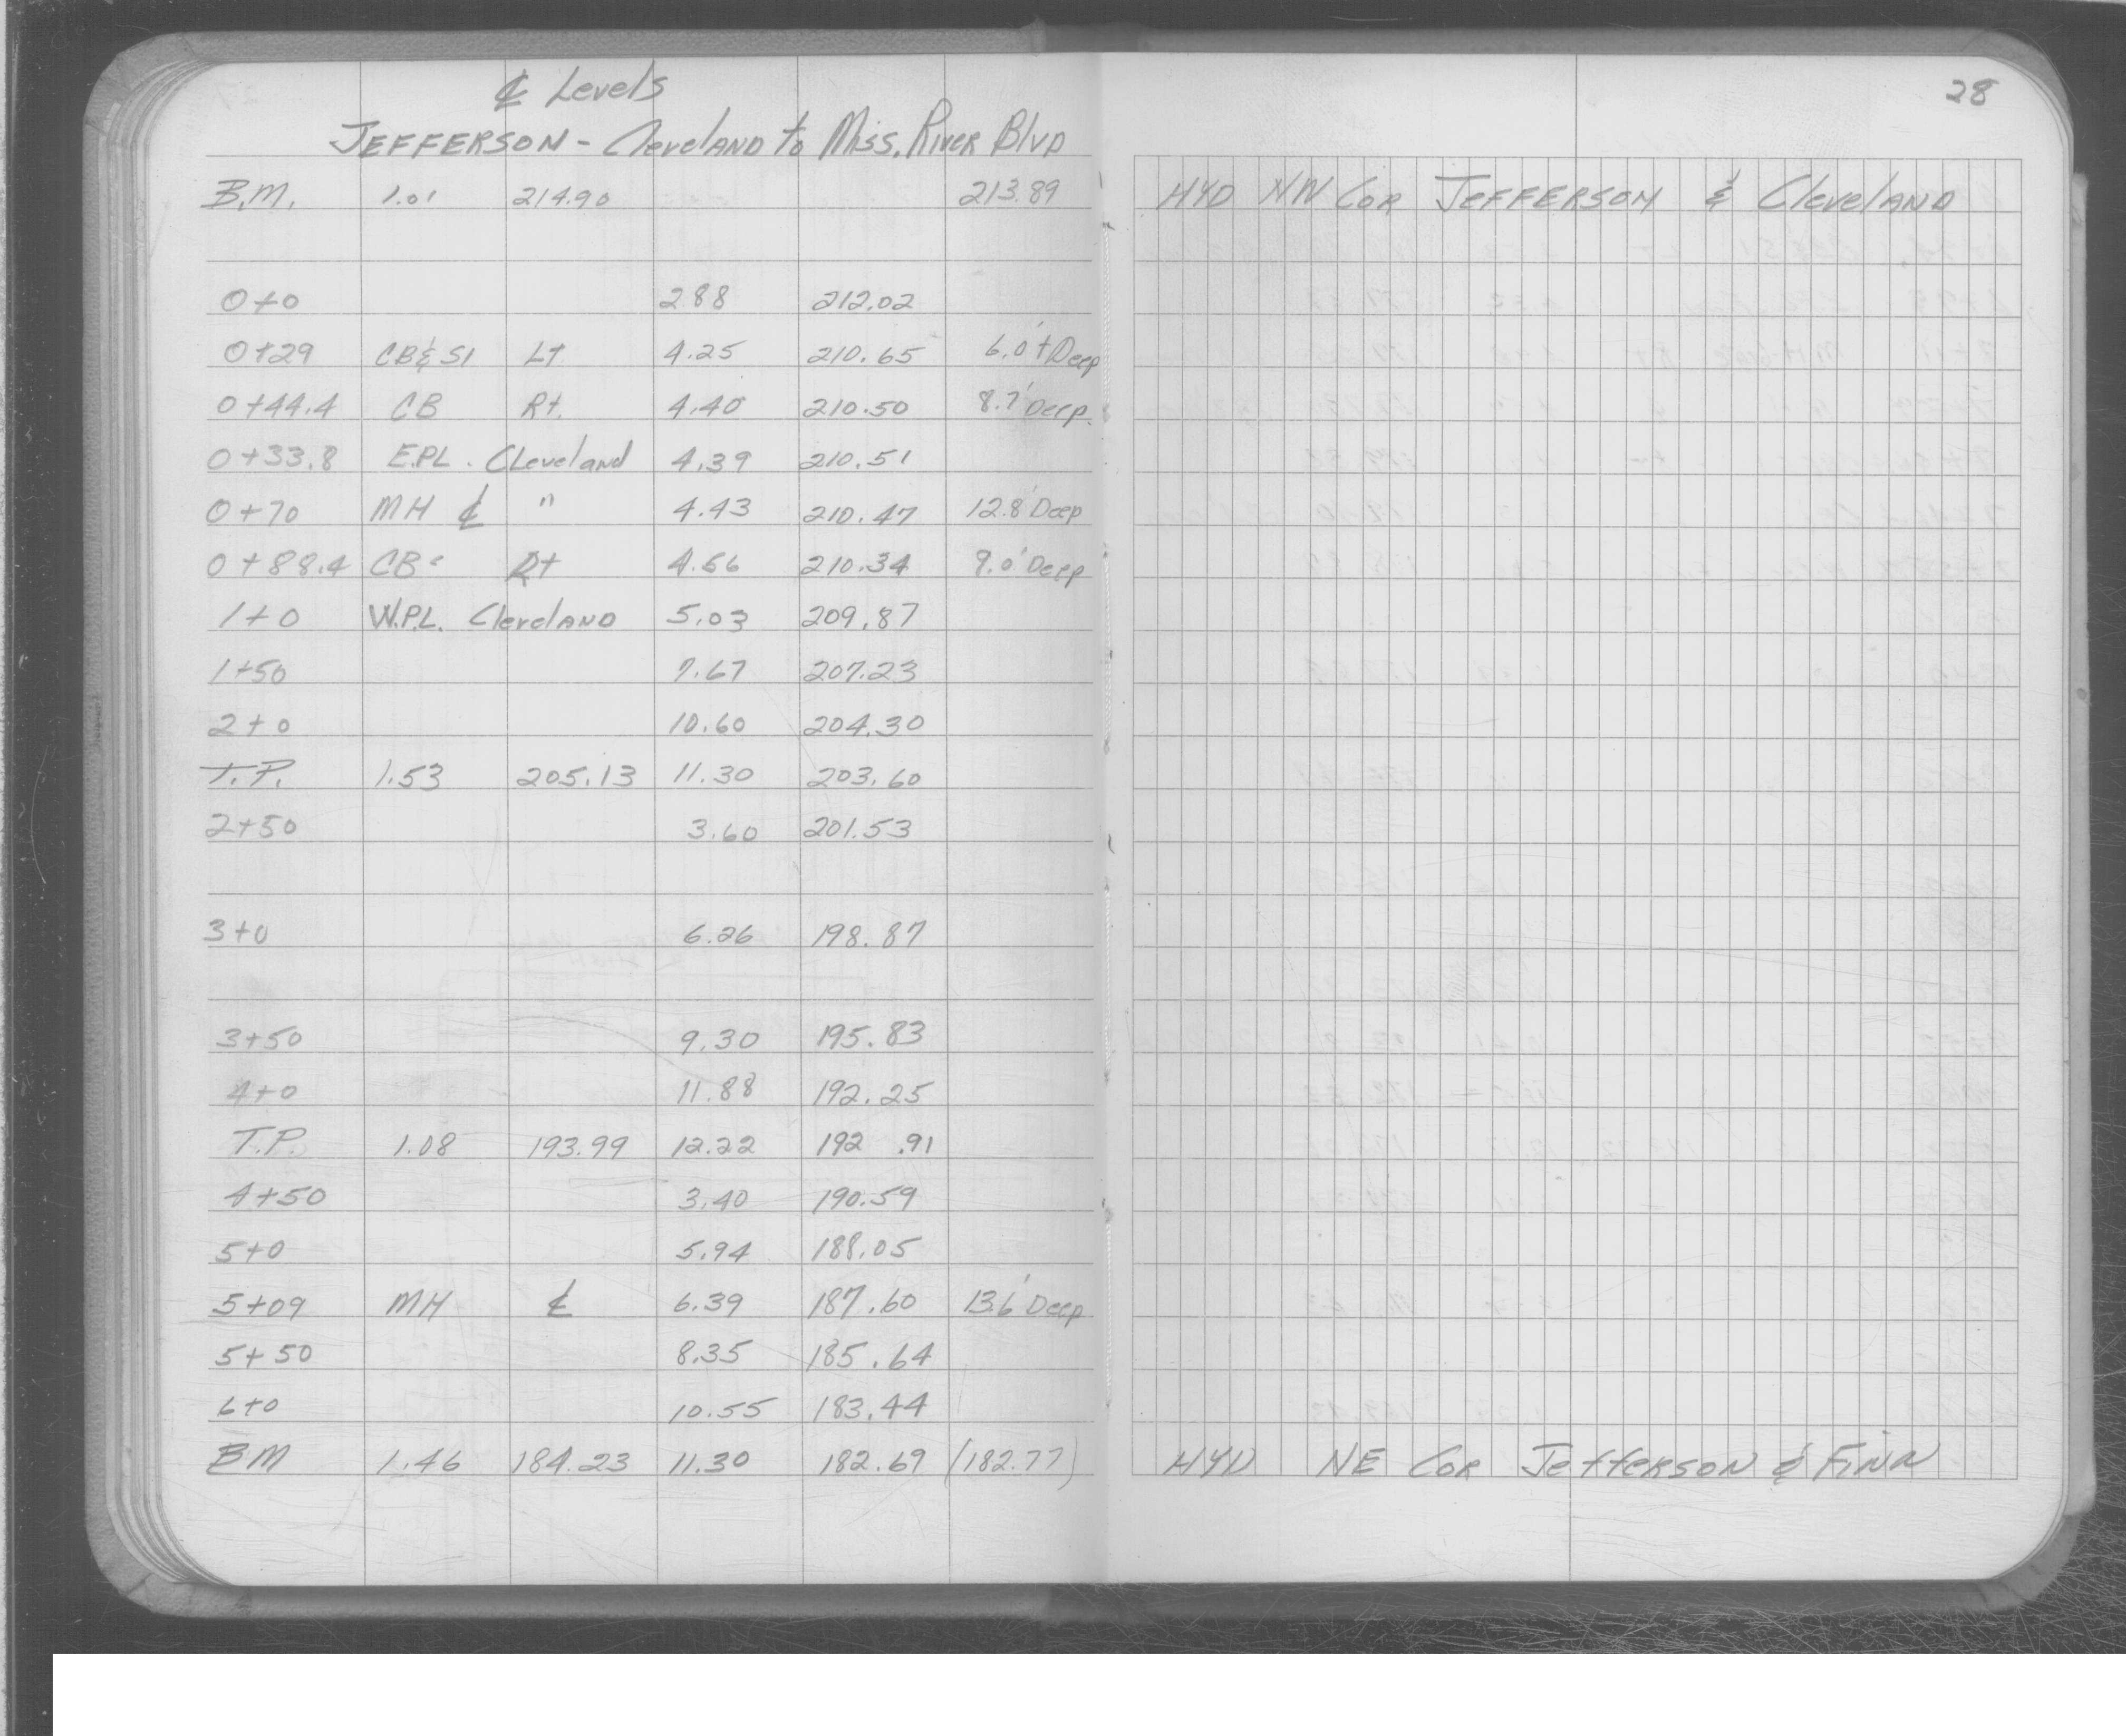 ℄ Levels 28
JEFFERSON - Cleveland to Miss. River Blvd
B.M. 1.01 214.90 213.89 HYD NW Cor JEFFERSON & Cleveland
0+0 288 212.02
0+29 CB & SI Lt 4.25 210.65 6.0'+ Deep
0+44.4 CB Rt. 4.40 210.50 8.7' Deep.
0+33.8 E.P.L. Cleveland 4.39 210.51
0+70 MH ℄ " 4.43 210.47 12.8' Deep
0+88.4 CB Rt 4.56 210.34 9.0' Deep
1+0 W.P.L. Cleveland 5.03 209.87
1+50 7.67 207.23
2+0 10.60 204.30
T.P. 1.53 205.13 11.30 203.60
2+50 3.60 201.53
3+0 6.26 198.87
3+50 9.30 195.83
4+0 11.88 192.25
T.P. 1.08 193.99 12.22 192.91
4+50 3.40 190.59
5+0 5.94 188.05
5+09 MH ℄ 6.39 187.60 13.6' Deep
5+50 8.35 185.64
6+0 10.55 183.44
BM 1.46 184.23 11.30 182.69 (182.77) HYD NE Cor Jefferson & Finn